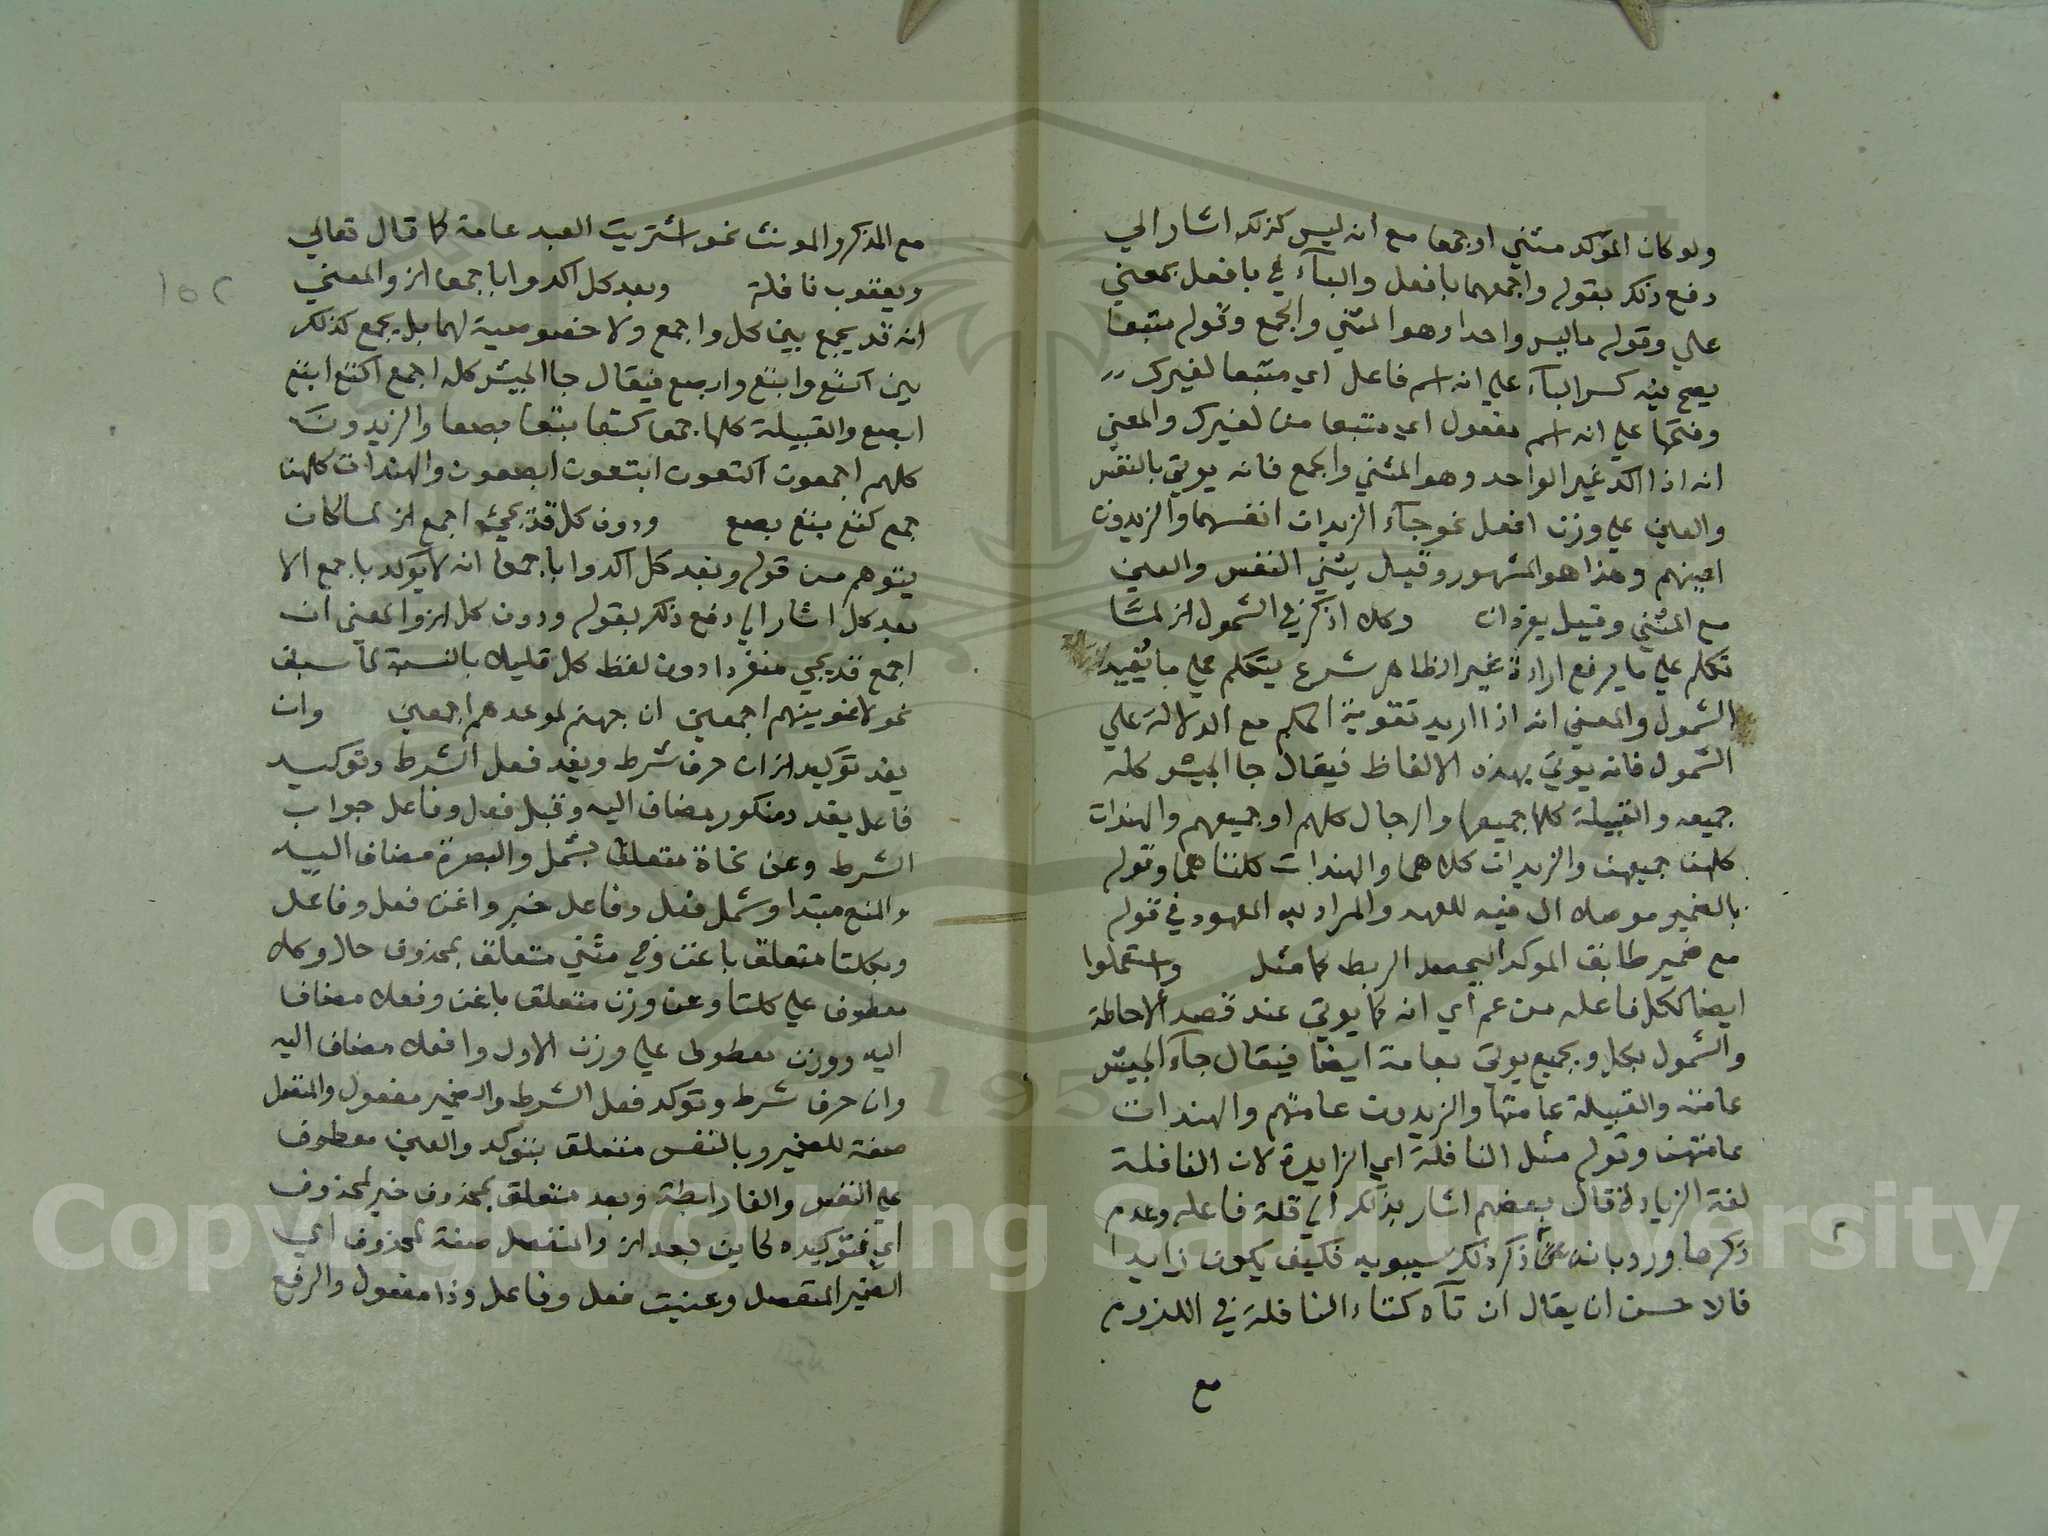 ولو كان المؤكد مثني او جمعا مع انه ليس كذلك اشار الي
دفع ذلك بقوله واجمعهما بافعل والبآء في بافعل بمعني
علي وقوله ما ليس واحدا وهو المثني والجمع وقوله متبعا
يصح فيه كسر البآء علي انه اسم فاعل اي متبعا لغيرك
وفتحها علي انه اسم مفعول اي متبعا من لغيرك والمعني
انه اذا اكد غير الواحد وهو المثني والجمع فانه يوتي بالنفس
والعين علي وزن افعل نحو جآء الزيدان انفسهما والزيدون
اعينهم وهذا هو المشهور وقيل يثني النفس والعين
مع المثني وقيل يفردان وكلا اذكر في الشمول الخ لما
تكلم علي ما يرفع ارادة غير الظاهر شرع يتكلم علي ما يفيد
الشمول والمعني انه اذا اريد تقوية الحكم مع الدلالة علي
الشمول فانه يوتي بهذه الالفاظ فيقال جا الجيش كله
جميعه والقبيلة كلها جميعها والرجال كلهم او جميعهم والهندات
كلهن جميعهن والزيدان كلاهما والهندات كلتاهما وقوله
بالضمير موصلا ال فيه للعهد والمراد به المعهود في قوله
مع ضمير طابق الموكد ليحصل الربط كما مثل واستعملوا
ايضا ككل فاعله من عم اي انه كما يوتي عند قصد الاحاطة
والشمول بكل وبجميع يوتي بعامة ايضا فيقال جآء الجيش
عامته والقبيلة عامتها والزيدون عامتهم والهندات
عامتهن وقوله مثل النافلة اي الزايدة لان النافلة
لغة الزيادة قال بعضهم اشار بذلك الي قلة فاعله وعدم
ذكرها ورد بانه ذكر ذلك سيبويه فكيف يكون زايدا
فالاحسن ان يقال ان تآه كتاء النافلة في اللزوم
مع
١٥٢
مع المذكر والمونث نحو اشتريت العبد عامة كما قال تعالي
ويعقوب نافلة وبعد كل اكدوا باجمعا الخ والمعني
انه قد يجمع بين كل واجمع ولا خصوصية لهما بل يجمع كذلك
بين اكتع وابتع وابصع فيقال جا الجيش كله اجمع اكتع ابتع
ابصع والقبيلة كلها جمعا كتعا بتعا بصعا والزيدون
كلهم اجمعون اكتعون ابتعون ابصعون والهندات كلهن
جمع كتع بتع بصع ودون كل قد يجئ اجمع الخ لما كان
يتوهم من قوله وبعد كل اكدوا باجمعا انه لا يوكد باجمع الا
بعد كل اشار الي دفع ذلك بقوله ودون كل الخ والمعني ان
اجمع قد يجي منفردا دون لفظ كل قليلا بالنسبة لما سبق
نحو لاغوينهم اجمعين ان جهنم لموعدهم اجمعين وان
يفد توكيد الخ ان حرف شرط ويفد فعل الشرط وتوكيد
فاعل يفد ومنكور مضاف اليه وقبل فعل وفاعل جواب
الشرط وعن نحاة متعلق بشمل والبصرة مضاف اليه
والمنع مبتدا وشمل فعل وفاعل خبر واغن فعل وفاعل
وبكلتا متعلق باغن وفي مثني متعلق بمحذوف حال وكلا
معطوف علي كلتا وعن وزن متعلق باغن وفعلا مضاف
اليه ووزن معطوف علي وزن الاول وافعلا مضاف اليه
وان حرف شرط وتوكد فعل الشرط والضمير مفعول والمتصل
صفة للضمير وبالنفس متعلق بتوكد والعين معطوف
علي النفس والفا رابطة وبعد متعلق بمحذوف خبر لمحذوف
اي فتوكيده كاين بعد الخ والمنفصل صفة لمحذوف اي
الضمير المنفصل وعنيت فعل وفاعل وذا مفعول والرفع
Copyright © King Saud University
195